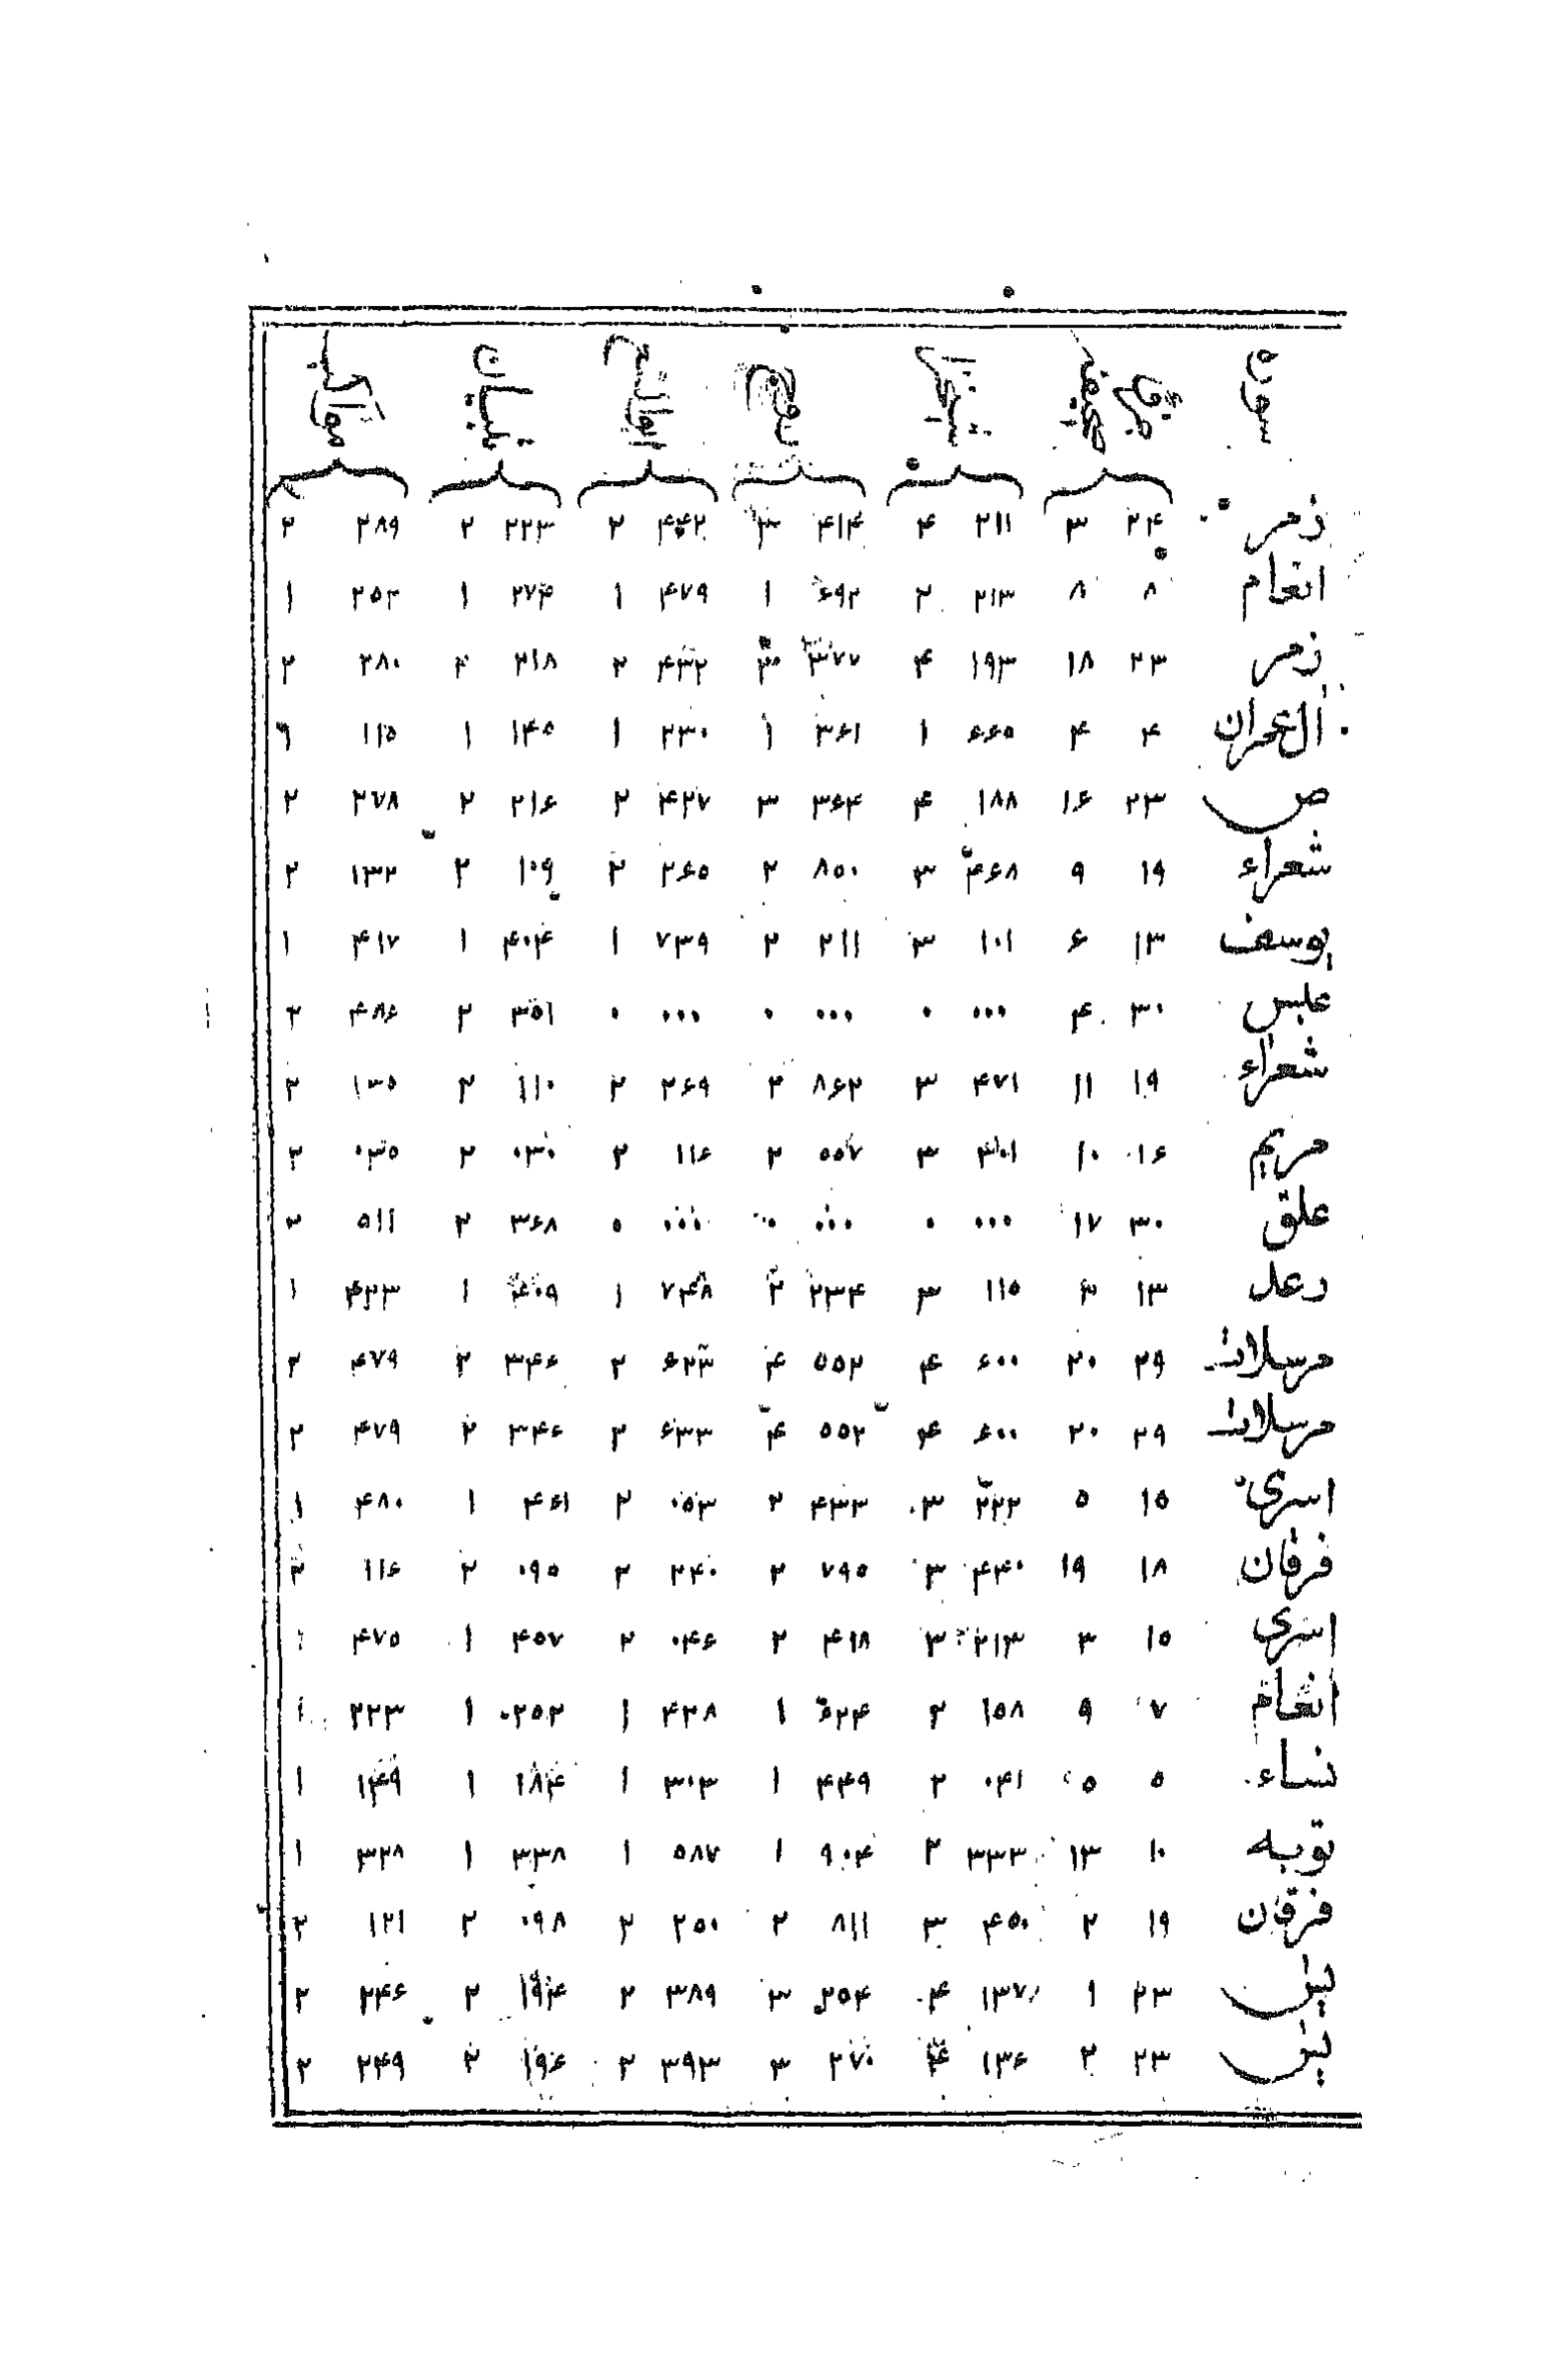 سوره
زمر ۲۴ ۳ ۲۱۱ ۴ ۴۱۴ ۳ ۴۴۲ ۲ ۲۲۳ ۲ ۲۸۹ ۲
انعام ۸ ۸ ۲۱۳ ۲ ۶۹۲ ۱ ۴۷۹ ۱ ۲۷۴ ۱ ۲۵۲ ۱
زمر ۲۳ ۱۸ ۱۹۳ ۴ ۳۷۷ ۳ ۴۳۲ ۲ ۲۱۸ ۲ ۲۸۰ ۲
ال عمران ۴ ۴ ۶۶۵ ۱ ۳۶۱ ۱ ۲۳۰ ۱ ۱۴۵ ۱ ۱۱۵
ص ۲۳ ۱۶ ۱۸۸ ۴ ۳۶۴ ۳ ۴۲۷ ۲ ۲۱۶ ۲ ۲۷۸ ۲
شعراء ۱۹ ۹ ۴۶۸ ۳ ۸۵۰ ۲ ۲۶۵ ۲ ۱۰۹ ۲ ۱۳۲ ۲
یوسف ۱۳ ۶ ۱۰۱ ۳ ۲۱۱ ۲ ۷۳۹ ۱ ۴۰۴ ۱ ۴۱۷ ۱
عبس ۳۰ ۴ ۰۰۰ ۰ ۰۰۰ ۰ ۰۰۰ ۰ ۳۵۱ ۲ ۴۸۶ ۲
شعراء ۱۹ ۱۱ ۴۷۱ ۳ ۸۶۲ ۲ ۲۶۹ ۲ ۱۱۰ ۲ ۱۳۵ ۲
مریم ۱۶ ۱۰ ۳۰۱ ۳ ۵۵۷ ۲ ۱۱۶ ۲ ۰۳۰ ۲ ۰۳۵ ۲
علق ۳۰ ۱۷ ۰۰۰ ۰ ۰۰۰ ۰ ۰۰۰ ۰ ۳۶۸ ۲ ۵۱۱ ۲
رعد ۱۳ ۳ ۱۱۵ ۳ ۲۳۴ ۲ ۷۴۸ ۱ ۴۰۹ ۱ ۴۲۳ ۱
مرسلات ۲۹ ۲۰ ۶۰۰ ۴ ۵۵۲ ۴ ۶۲۳ ۲ ۳۴۶ ۲ ۴۷۹ ۲
مرسلات ۲۹ ۲۰ ۶۰۰ ۴ ۵۵۲ ۴ ۶۳۳ ۲ ۳۴۶ ۲ ۴۷۹ ۲
اسری ۱۵ ۵ ۲۲۲ ۳ ۴۳۳ ۲ ۰۵۳ ۲ ۴۶۱ ۱ ۴۸۰ ۱
فرقان ۱۸ ۱۹ ۴۴۰ ۳ ۷۹۵ ۲ ۲۴۰ ۲ ۰۹۵ ۲ ۱۱۶ ۲
اسری ۱۵ ۳ ۲۱۳ ۳ ۴۱۸ ۲ ۰۴۶ ۲ ۴۵۷ ۱ ۴۷۵ ۱
انعام ۷ ۹ ۱۵۸ ۲ ۶۲۴ ۱ ۴۳۸ ۱ ۲۵۲ ۱ ۲۲۳ ۱
نساء ۵ ۵ ۰۴۱ ۲ ۴۴۹ ۱ ۳۰۳ ۱ ۱۸۴ ۱ ۱۴۹ ۱
توبه ۱۰ ۱۳ ۳۳۳ ۲ ۹۰۴ ۱ ۵۸۷ ۱ ۳۳۸ ۱ ۳۲۸ ۱
فرقان ۱۹ ۲ ۴۵۰ ۳ ۸۱۱ ۲ ۲۵۰ ۲ ۰۹۸ ۲ ۱۲۱ ۲
یس ۲۳ ۱ ۱۳۷ ۴ ۲۵۴ ۳ ۳۸۹ ۲ ۱۹۴ ۲ ۲۴۶ ۲
یس ۲۳ ۲ ۱۳۶ ۴ ۲۷۰ ۳ ۳۹۳ ۲ ۱۹۶ ۲ ۲۴۹ ۲